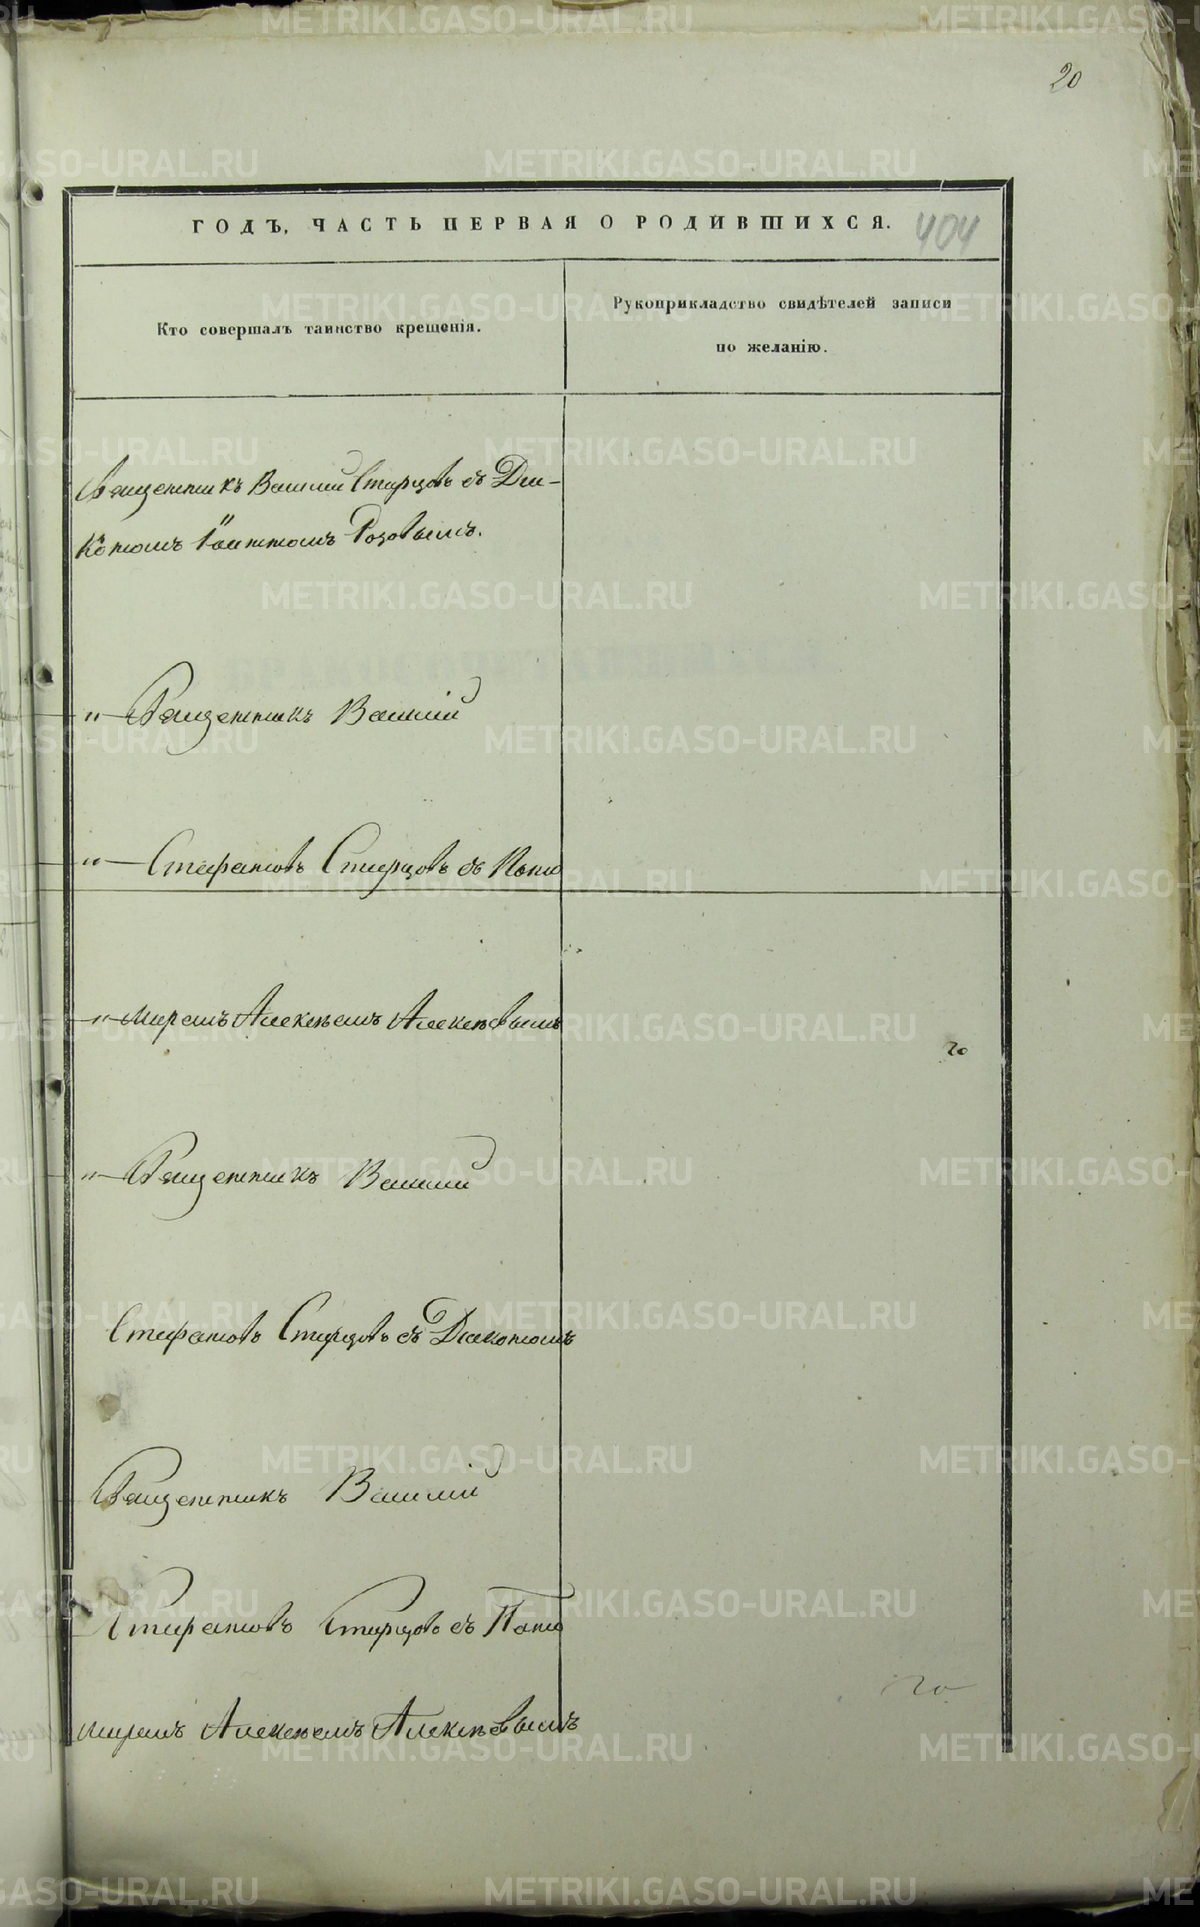 20
ГОДЪ, ЧАСТЬ ПЕРВАЯ О РОДИВШИХСЯ. 404
Кто совершалъ таинство крещенія.
Рукоприкладство свидѣтелей записи
по желанію.
Священникъ Василій Старцовъ съ Діа-
кономъ Іоанномъ Розовымъ.
"— Священникъ Василій
"— Стефановъ Старцовъ съ Поно
"— маремъ Алексѣемъ Алексѣевымъ
20
"— Священникъ Василій
Стефановъ Старцовъ съ Діакономъ
Священникъ Василій
Стефановъ Старцовъ съ Поно
маремъ Алексѣемъ Алексѣевымъ
20
METRIKI.GASO-URAL.RU